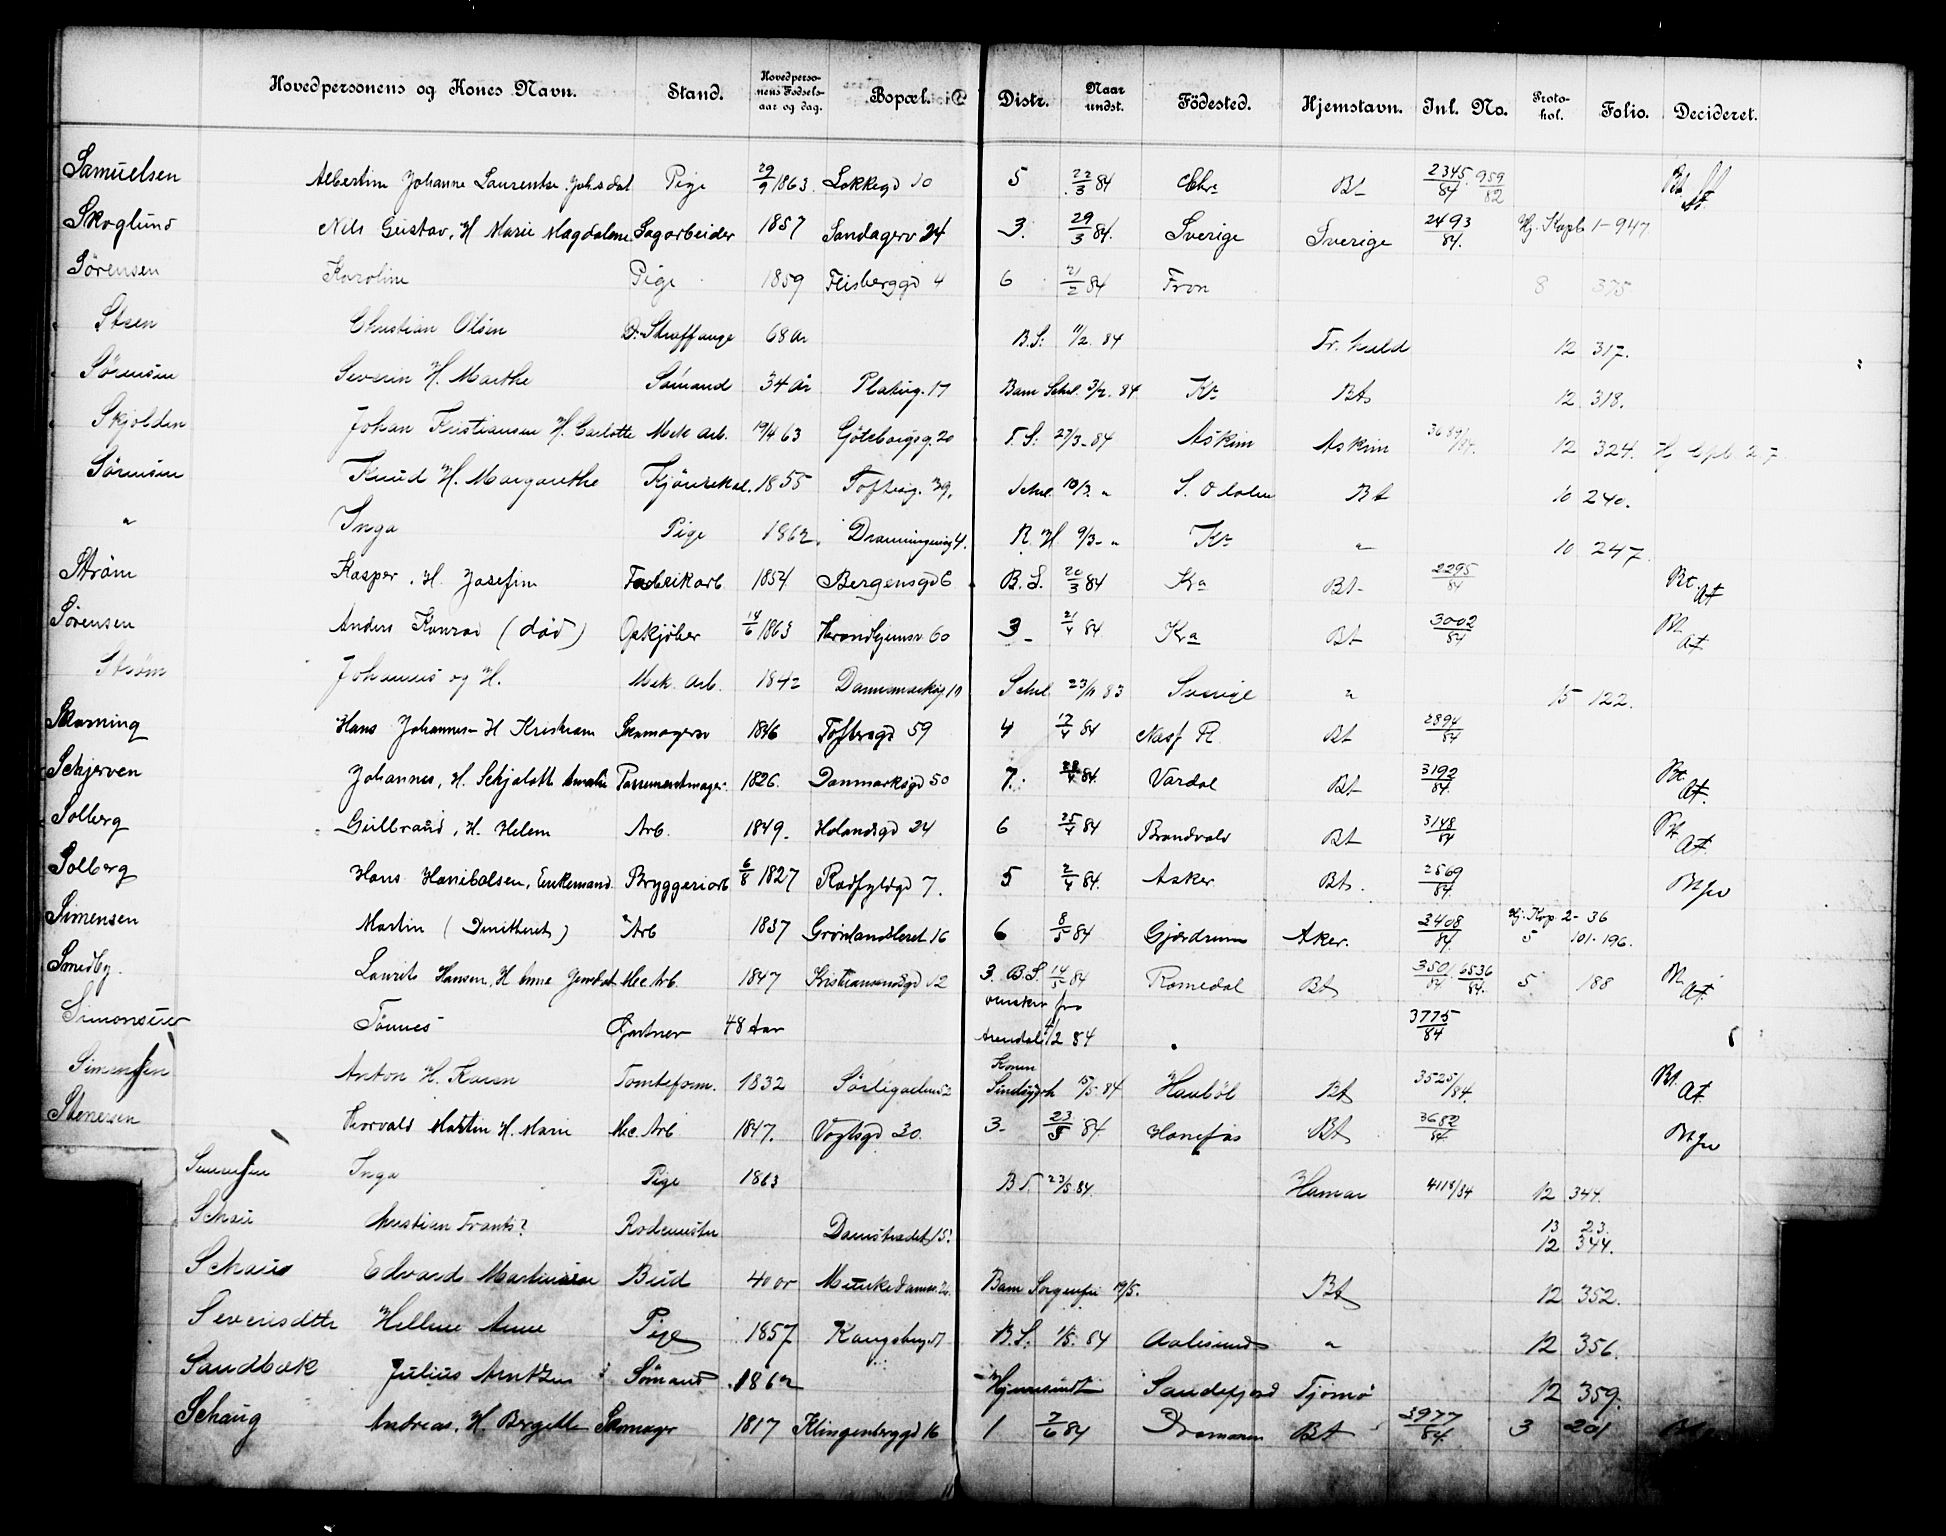 Hovedpersonens og Kones Navn. Stand. Hovedpersonens Födselsaar og dag. Bopæl. Distr. Naar undst. Födested. Hjemstavn. Inl. No. Protokol. Folio. Decideret.
Samuelsen Albertine Johanne Laurentse Pige 29/9 1863 Lökkegd 10 5 22/3 84 Chra Bt 2345/84 959/82 Bt
Skoglund Nils Gustav, H Marie Magdalene Sagarbeider 1857 Sandagerv 24 3. 29/3 84. Sverige Sverige 2493/84. Hj. Kopb 1-947
Sörensen Karoline Pige 1859 Feisberggd 4 6 21/2 84 Fron 8 375
Steen Christian Olsen D. Straffange 68 Ar B.S. 11/2. 84 Fr. hald 12 317.
Sörensen Severin H. Marthe Sömand 34 År Platoug. 17 Barn 3/2. 84 Kr Bt 12 318.
Skjolden Johan Kristiansen H. Carlotte Mek arb. 19/4 63 Göteborgsg. 20 T. S. 27/3-84 Askim Askim 3689/84. 12 324. 27
Sörensen Knud H. Margarethe 1855 Toftesg. 39, 10/3. " S. Odalen Bt 10 240.
" Inga Pige 1862. Dronningensg 4. R. H 9/3- " Kr " 10 247
Ström Kasper, H. Josefine Fabrikarb 1854 Bergensgd 6 B. S. 20/3 84 Kra Bt 2295/84 Bt. At
Sörensen Anders Konrad (död) Opkjöber 14/6 1863 Trondhjemsv 60 3- 21/4 84 Kra Bt 3002/84 Bt At
Ström Johannes og H. Mek. Arb. 1842 Danmarksg 19 83 Sverige " 15 122.
Skarning Hans Johannes- H Kristiane Skomagersv 1846 Toftesgd 59 4 17/4 84 Næs R. Bt 2894/84
Schjerven Johannes, H. Schjalott Amalie Possementmager 1826. Danmarksgd 50 7. 28/4 84. Vardal Bt 3192/84. Bt. At.
Solberg Gulbrand, H. Helene Arb. 1849. Holandsgd 24 6 25/4 84 Brandvald Bt 3148/84 Bt At.
Solberg Hans Hanibalsen, Enkemand Bryggeriarb 6/8 1827 Rödfyldgd 7. 5 2/4 84. Asker Bt. 2569/84.
Simensen Martin (Dimitteret) Arb 1837 Grönlandsleret 16 6 8/5 84 Gjerdrum Aker. 3408/84. Hj. Kop. 2- 36 5 101-196.
Smedby. Laurits Hansen, H Anne Mec Arb. 1847 Kristiansandsgd 12 3. B.S. 14/5 84 Romedal Bt 3501/84 6536/84. 5 188 Bt At.
Simonsen Tönnes Gartner 48 Aar önsker fra Arendal 4/2 84 3775/84
Simensen Anton H. Karen Tomteform. 1832 Sörligaden 52 Konen Sindssygeh 15/5. 84 Hauböl Bt 3525/84. Bt. At
Stenersen Thorvald Martin H. Marie Mec. Arb 1847. Vogtsgd 30. 3- 23/5 84. Hönefos Bt 3682/84.
Simensen Inga Pige 1863 23/5. 84. Hamar 4118/84 12 344.
Schau Christian Frantz? Rodemester Damstrædet 15. 13 23. 12 344.
Schau Edvard Martinsen Bud 40 år Munkedamsv. Barn Sorgenfri 19/5. Bt 12 352.
Severisdtr Helline Anne Pige 1857 Kongsbergd B. S. 84 Aalesund " 12 356.
Sandbæk Julius Arntzen Sömand 1862 Hjemsendt Sandefjord Tjömö 12 359.
Schaug Andreas, H. Bergitte Skomager 1817 Klingenberggd 16 1 7/6 84 Drammen Bt 3977/84. 3 201